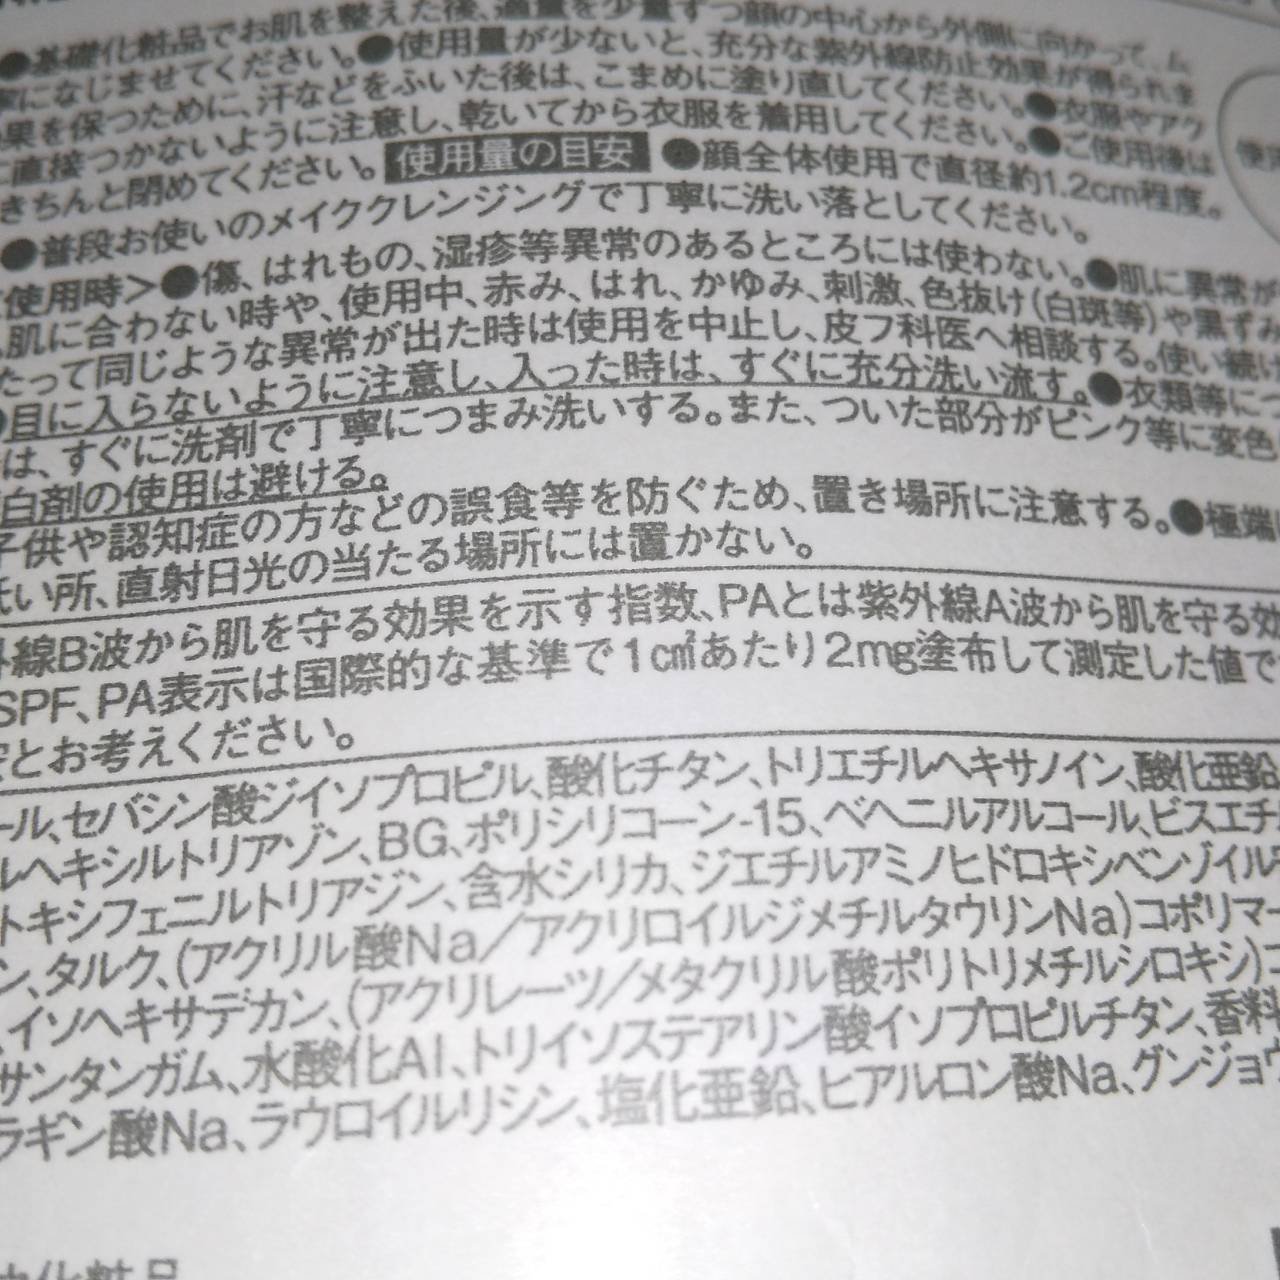 ●基礎化粧品でお肌を整えた後、適量を少量ずつ顔の中心から外側に向かって、ム
になじませてください。●使用量が少ないと、充分な紫外線防止効果が得られま
果を保つために、汗などをふいた後は、こまめに塗り直してください。●衣服やアク
直接つかないように注意し、乾いてから衣服を着用してください。●ご使用後は
きちんと閉めてください。 使用量の目安 ●顔全体使用で直径約1.2cm程度。
●普段お使いのメイククレンジングで丁寧に洗い落としてください。
使用時＞●傷、はれもの、湿疹等異常のあるところには使わない。●肌に異常が
肌に合わない時や、使用中、赤み、はれ、かゆみ、刺激、色抜け(白斑等)や黒ずみ
たって同じような異常が出た時は使用を中止し、皮フ科医へ相談する。使い続け
●目に入らないように注意し、入った時は、すぐに充分洗い流す。●衣類等につ
は、すぐに洗剤で丁寧につまみ洗いする。また、ついた部分がピンク等に変色
白剤の使用は避ける。
子供や認知症の方などの誤食等を防ぐため、置き場所に注意する。●極端
低い所、直射日光の当たる場所には置かない。
外線B波から肌を守る効果を示す指数、PAとは紫外線A波から肌を守る効
SPF、PA表示は国際的な基準で1c㎡あたり2mg塗布して測定した値で
とお考えください。
ール、セバシン酸ジイソプロピル、酸化チタン、トリエチルヘキサノイン、酸化亜鉛
ルヘキシルトリアゾン、BG、ポリシリコーン-15、ベヘニルアルコール、ビスエチ
トキシフェニルトリアジン、含水シリカ、ジエチルアミノヒドロキシベンゾイル
ン、タルク、(アクリル酸Na／アクリロイルジメチルタウリンNa)コポリマー
、イソヘキサデカン、(アクリレーツ／メタクリル酸ポリトリメチルシロキシ)コ
サンタンガム、水酸化Al、トリイソステアリン酸イソプロピルチタン、香料
ラギン酸Na、ラウロイルリシン、塩化亜鉛、ヒアルロン酸Na、グンジョウ
化粧品
使